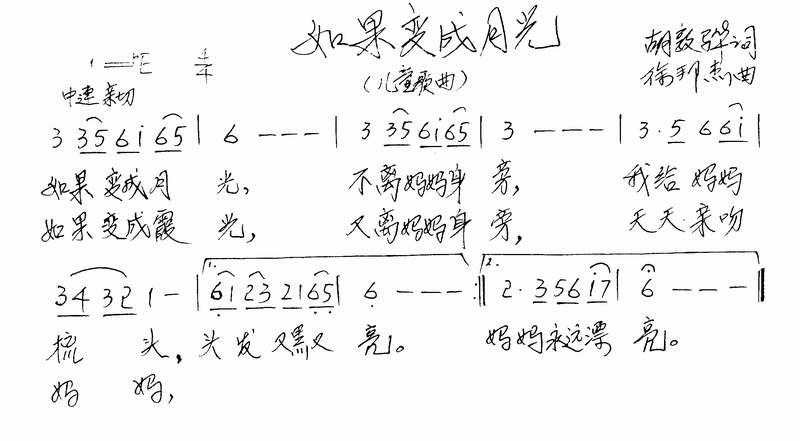 如果变成月光
(儿童歌曲)
1=♭E 4/4
中速 亲切
胡敦骅词
徐邦杰曲
3 35 6i 65 | 6 --- | 3 35 6i 65 | 3 --- | 3·5 6 6i |
如果变成月 光, 不离妈妈身 旁, 我给妈妈
如果变成霞 光, 又离妈妈身 旁, 天天亲吻
34 32 1- | 1. 61 23 21 65 | 6 --- :|| 2. 2·3 56 i7 | 6 --- ||
梳 头, 头发又黑又 亮。 妈妈永远漂 亮。
妈 妈,